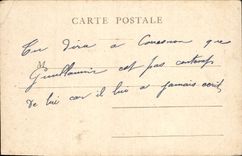 CARTE POSTALE
Tu dira a Couesnon que
Guillaumin est pas content
de lui car il lui a jamais ecrit